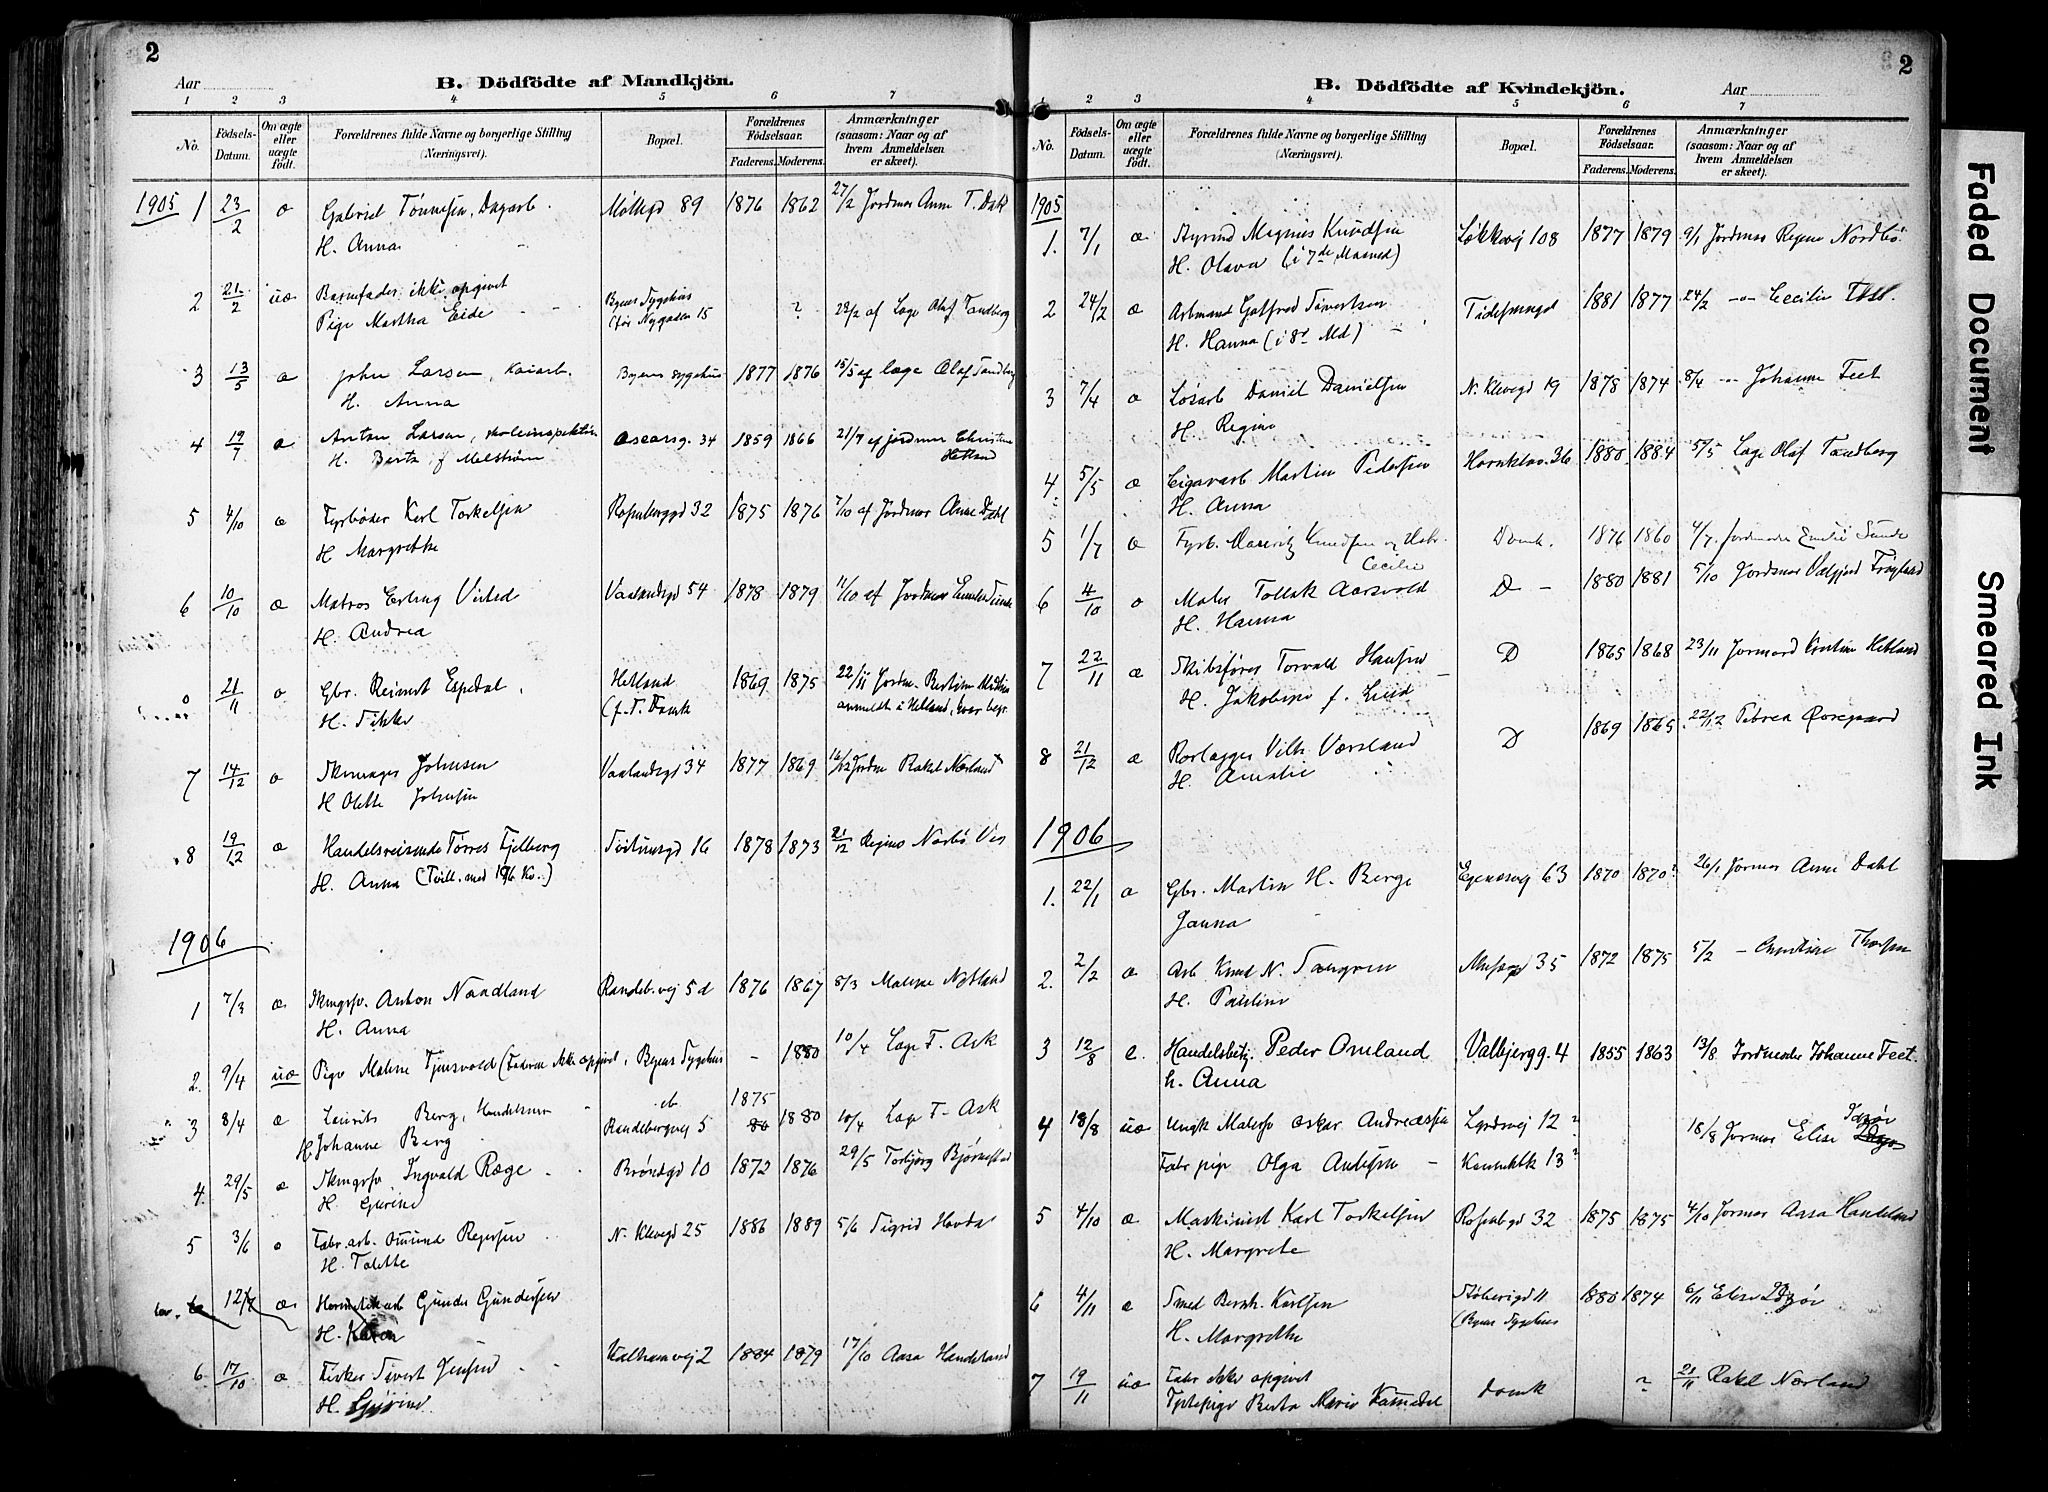 2
Aar
B. Dödfödte af Mandkjön.
1 2 3 4 5 6 7
No.
Födsels-Datum.
Om ægte eller uægte födt.
Forældrenes fulde Navne og borgerlige Stilling (Næringsvei).
Bopæl.
Forældrenes Födselsaar.
Faderens. Moderens.
Anmærkninger (saasom: Naar og af hvem Anmeldelsen er skeet).
1905 1 23/2 æ Gabriel Tønnesen, Dagarb. Møllegd 89 1876 1862 27/2 Jordmor Anne T. Dahl
H. Anna
2 21/2 uæ Barnefader ikke opgivet Byens Sygehus ? af Læge Olaf Sandberg
Pige Martha Eide Nygaden 15
3 13/5 æ John Larsen, Kaiarb. Byens sygehus 1877 1876 15/5 af læge Olaf Sandberg
H. Anna
4 19/7 æ Anton Larsen, skoleinspektør Oscarsg. 34 1859 1866 21/7 af jordmor Christine Hetland
H. Berta f Melstrøm
5 4/10 æ Fyrbøder Karl Torkelsen Rosenberggd 32 1875 1876 7/10 af Jordmor Anne Dahl
H Margrethe
6 10/10 æ Matros Erling Vistad Vaalandsgd 54 1878 1879 11/10 af Jordmor Emilie Sunde
H. Andrea
0 21/11 æ Gbr. Reinert Espedal Hetland 1869 1875 22/11 Jordm.
H. Sikke (f. T. Domk anmeldt i Hetland, hvor begr.
7 14/12 æ Skomager Johnsen Vaalandsgd 34 1877 1869 16/12 Jordm Rakel Nærland
H Olette Johnsen
8 19/12 æ Handelsreisende Tørres Fjelberg 16 1878 1873 21/12 Regine Norbø
H. Anna (Tvill. med 196 Kv.)
1906
1 7/3 æ Skmgsv. Anton Nordland Randeb.vej 5d 1876 1867 8/3 Malene Nætland
H. Anna
2. 9/4 uæ Pige Malene Tjensvold (Faderen ikke opgivet, Byens Sygehus - 1880 10/4 Læge F. Ask
3 8/4 æ Laurits Berg, Randebergvej 5 1875 1880 10/4 Læge F. Ask
H Johanne Berg
4. 29/5 æ Skmgsv Ingvald Ræge Brøndgd 10 1872 1876 29/5 Torbjørg Bjørnestad
H. Gurine
5 3/6 æ Fabr.arb. Omund Regersen N. Klevegd 25 1886 1889 5/6 Sigrid Hovda
H. Tolette
12/7 æ Hermetikarb Gunder Gundersen
H. Karen
6. 17/10 æ Fisker Sivert Jensen Kalhamvej 2 1884 1879 17/10 Aasa Handeland
H. Gurine
2
B. Dödfödte af Kvindekjön.
Aar
1 2 3 4 5 6 7
No.
Födsels-Datum.
Om ægte eller uægte födt.
Forældrenes fulde Navne og borgerlige Stilling (Næringsvei).
Bopæl.
Forældrenes Födselsaar.
Faderens. Moderens.
Anmærkninger (saasom: Naar og af hvem Anmeldelsen er skeet).
1905
1. 7/1 æ Styrmd Magnus Knudsen Løkkevej 108 1877 1879 9/1 Jordmor Regine Nordbø
H. Olava (i 7de Maaned)
2 24/2 æ Arbmand Gotfred Sivertsen 1881 1877 24/2 -"- Cecilie
H. Hanna (i 8d Md)
3 7/4 æ Løsarb Daniel Danielsen N. Klevegd 19 1878 1874 8/4 -"- Johanne Feet
H. Regine
4. 5/5 æ Cigararb Martin Pedersen Hornklov. 36 1880 1884 5/5 Læge Olaf Sandberg
H. Anna
5 1/7 æ Fyrb. Knudsen og Hstr. Cecilie Domk. 1876 1860 4/7 Jordmoder Emilie Sunde
6 4/10 æ Maler Tollak Aarsvold D - 1880 1881 5/10 Jordmor
H. Hanna
7 22/11 æ Skibsfører Torvald Hansen D 1865 1868 23/11 Jormord Kristine Hetland
H. Jakobine f. Lund
8 21/12 æ Rørlægger Vilh. Værsland D 1869 1865 22/12 Petrea
H. Amalie
1906
1. 22/1 æ Gbr. Martin H. Berge Egenesvej 63 1870 1870? 26/1 Jormor Anne Dahl
Janna
2. 2/2 æ Arb Knud N. 35 1872 1875 5/2 - Christine Thorsen
H. Pauline
3 12/8 e. Handelsbetj. Peder Omland Valbjergg. 4 1855 1863 13/8 Jordmoder Johanne Feet.
h. Anna
4 18/8 uæ Ungk Malersv Oskar Andreassen 12 ? 18/8 Jormor Elise Idsøe
Fabr pige Olga Andersen - 13 ?
5 4/10 æ Maskinist Karl Torkelsen Rosenbgd 32 1875 1875 4/10 Jormor Aasa Handeland
H. Margrete
6 4/11 æ Smed Bernh. Karlsen Støberigd 11 1880 1874 6/11 Elise Idsøe
H. Margrethe (Byens Sygehus
7 19/11 uæ Fader ikke opgivet Domk ? 21/11 Rakel Nærland
Tjstepige Berta Marie
Faded Document
Smeared Ink